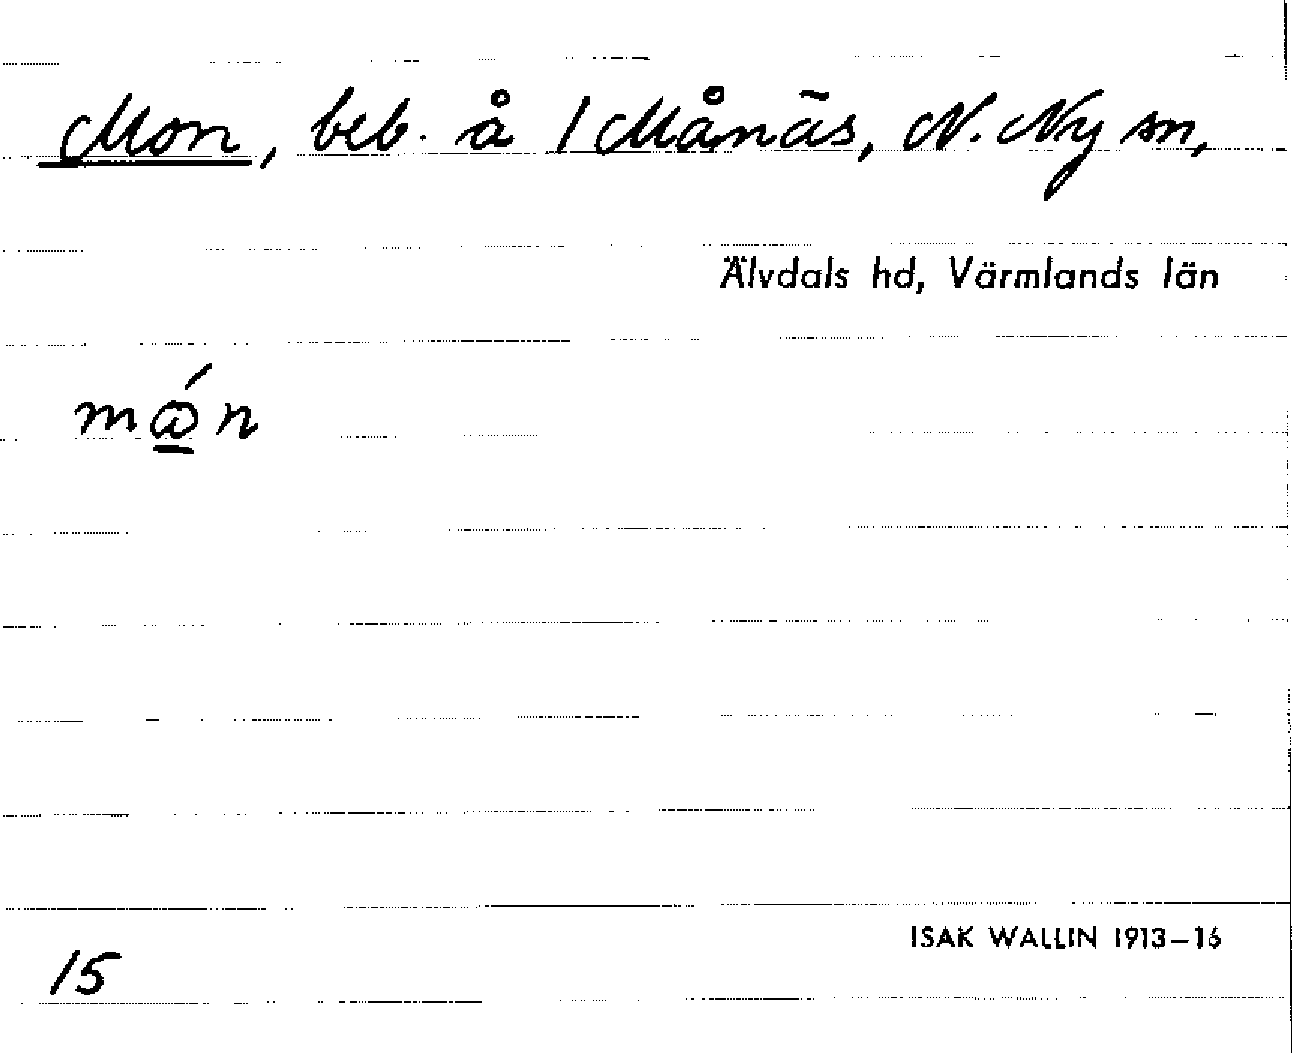 Mon, beb. å 1 Månäs, N. Ny sn,
Älvdals hd, Värmlands län
má̲n
15
ISAK WALLIN 1913–16